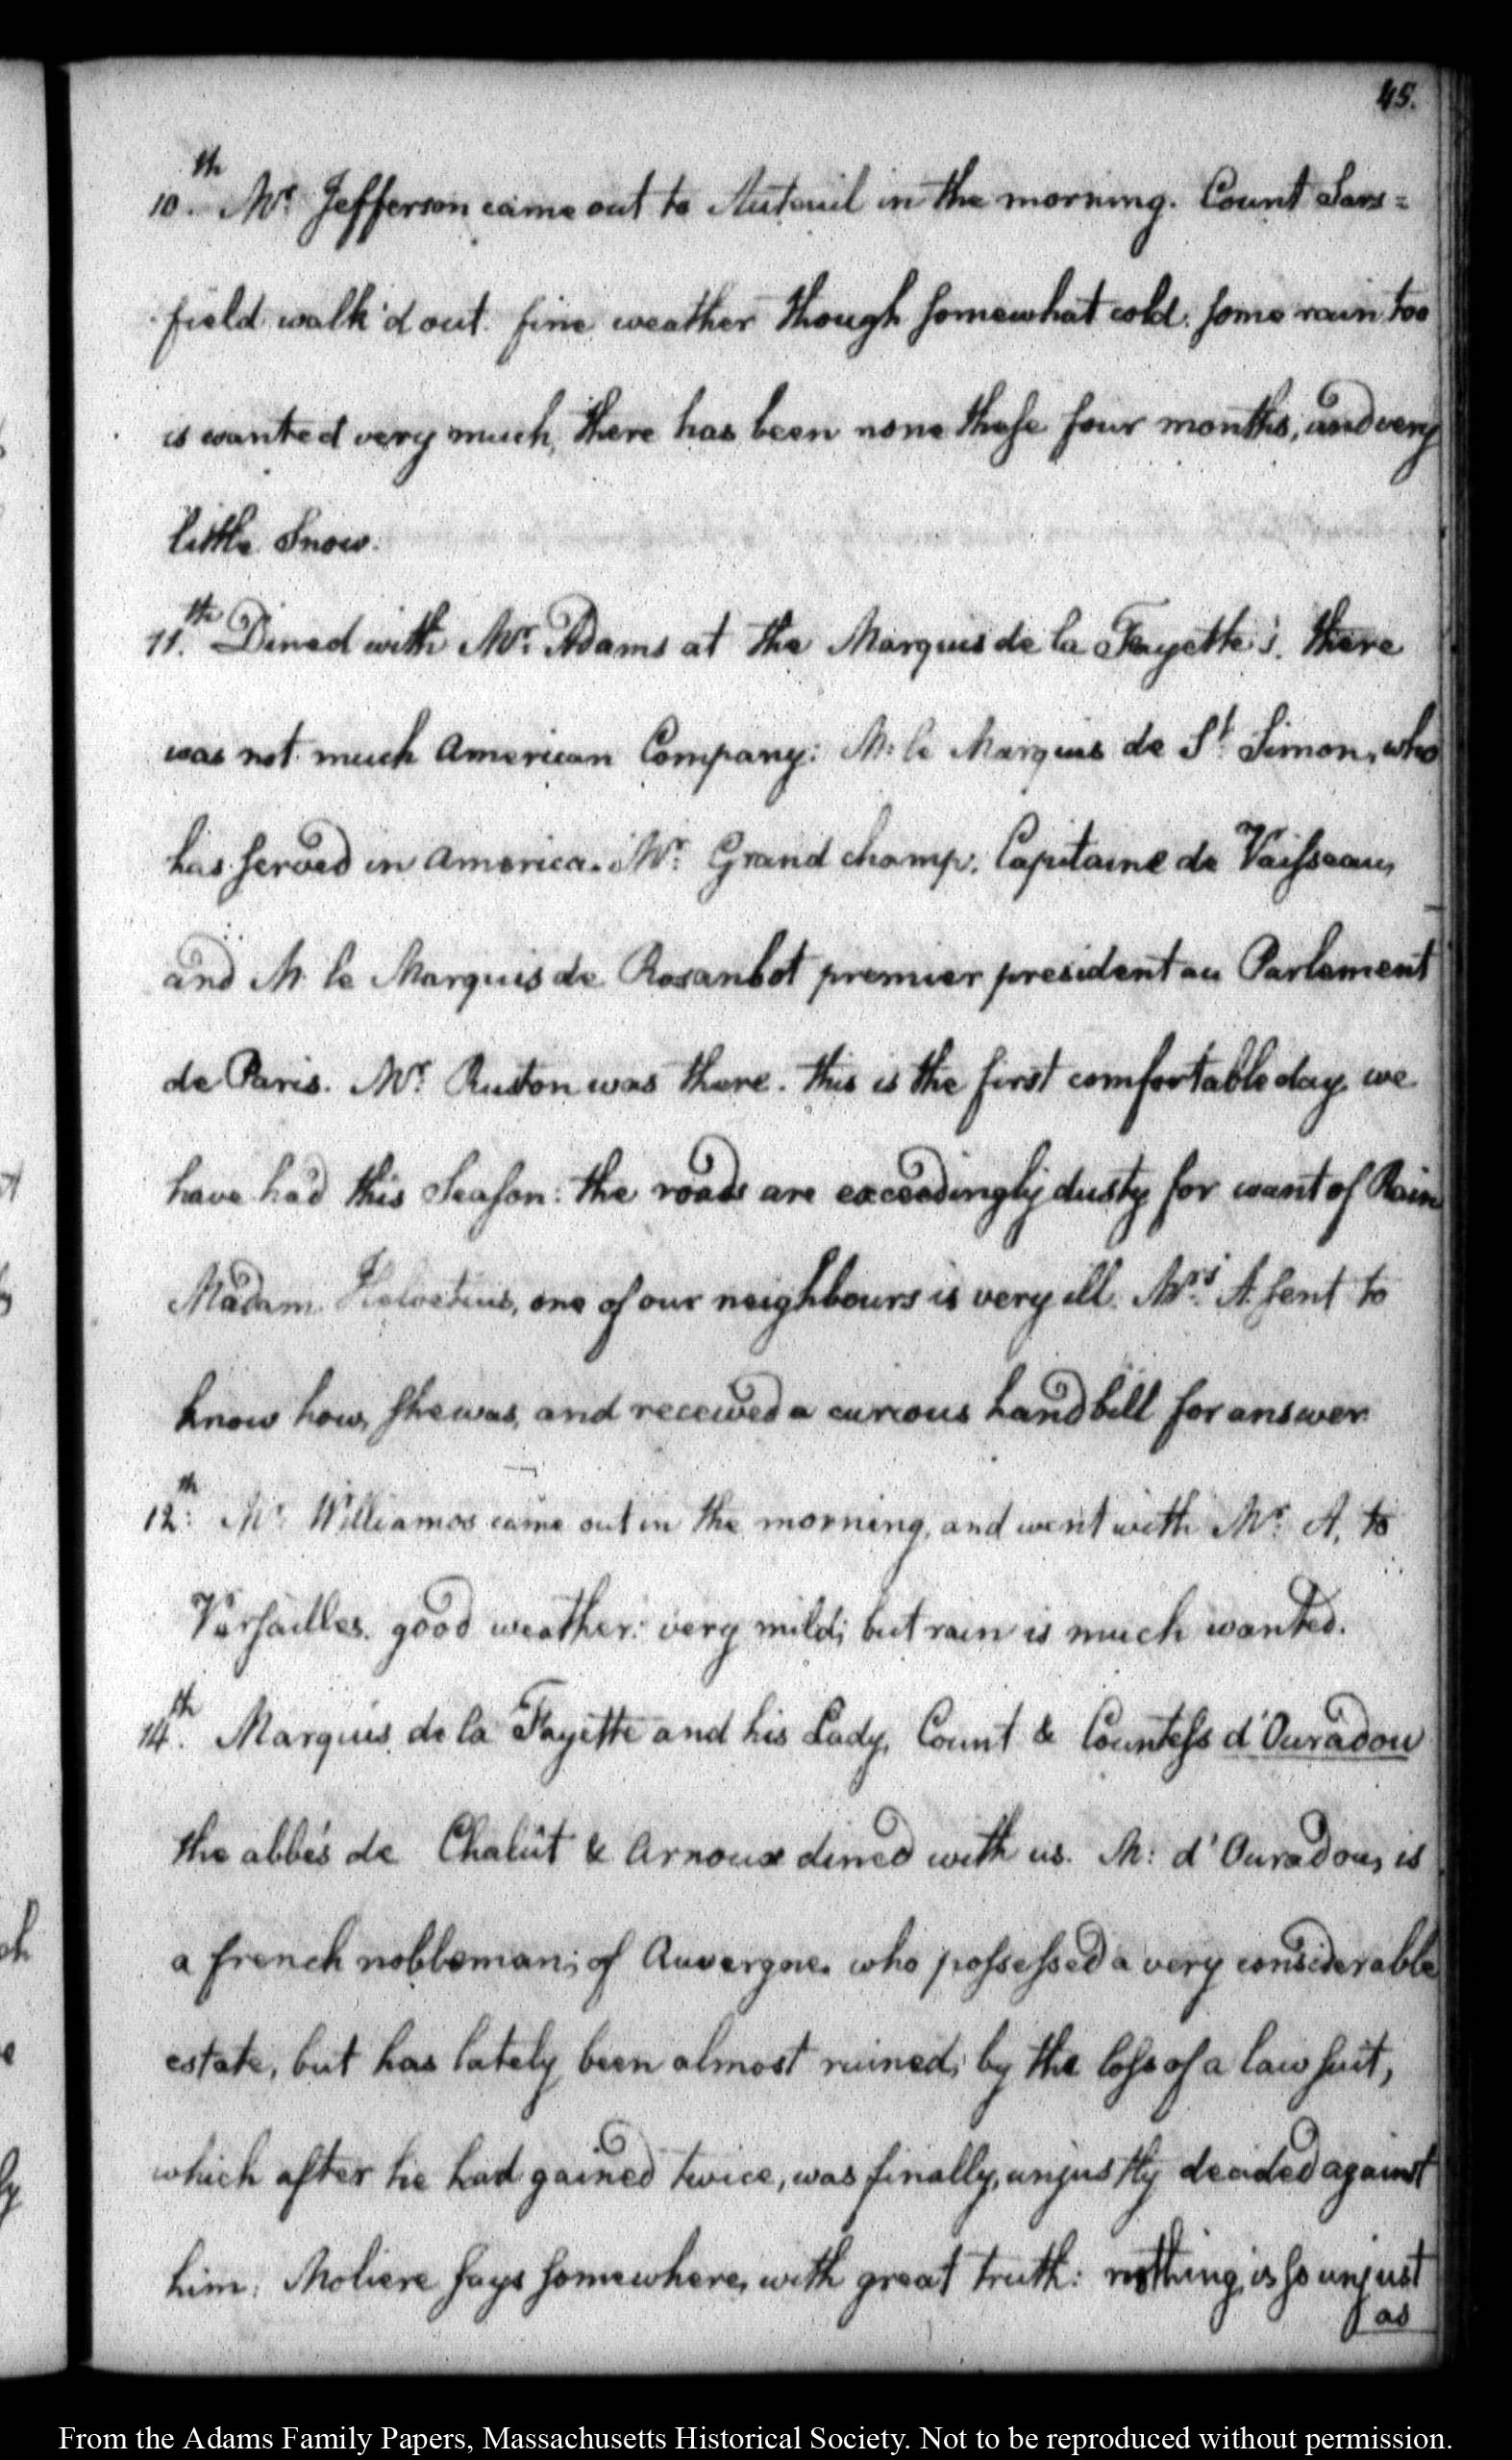 45.
10.th Mr. Jefferson came out to Auteuil in the morning. Count Sars=
field walk'd out. fine weather though somewhat cold. some rain too
is wanted very much, there has been none these four months, and very
little Snow.
11.th Dined with Mr. Adams at the Marquis de la Fayette's. there
was not much American Company: M. le Marquis de St. Simon, who
has served in America. Mr. Grand champ, Capitaine de Vaisseau,
and M. le Marquis de Rosanbot premier president au Parlement
de Paris. Mr. Ruston was there. this is the first comfortable day we
have had this Season: the roads are exceedingly dusty for want of Rain
Madam Helvetius, one of our neighbours is very ill. Mrs. A sent to
know how she was, and received a curious hand bill for answer.
12.th Mr. Williamos came out in the morning, and went with Mr. A. to
Versailles. good weather: very mild; but rain is much wanted.
14.th Marquis de la Fayette and his Lady, Count & Countess d'Ouradou
the abbés de Chalût & Arnoux dined with us. M: d'Ouradou, is
a french nobleman; of Auvergne. who possessed a very considerable
estate, but has lately been almost ruined, by the loss of a law suit,
which after he had gained twice, was finally, unjustly decided against
him: Moliere says somewhere, with great truth: nothing is so unjust
as
From the Adams Family Papers, Massachusetts Historical Society. Not to be reproduced without permission.